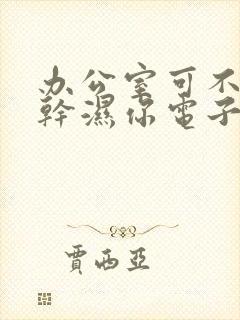 办公室可不
幹濕你電子
賈西亞